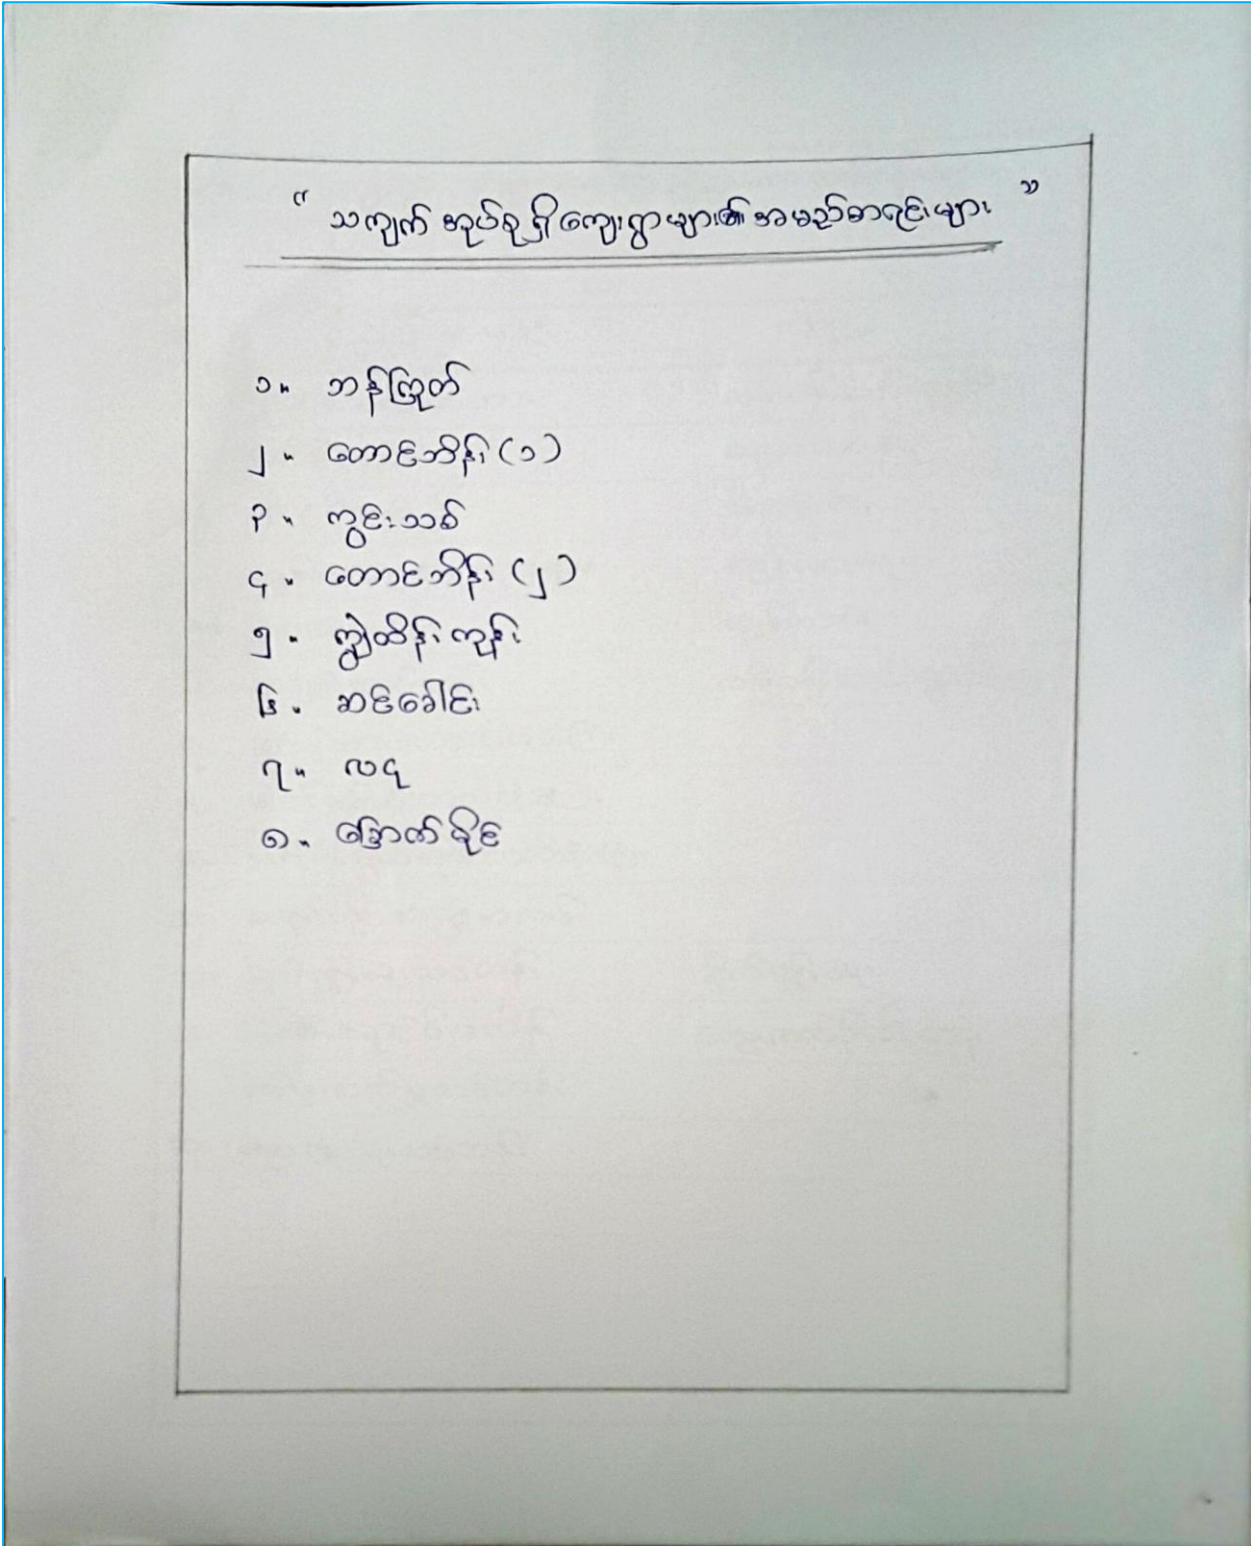 “ သကျက် အုပ်စု ရှိ ကျေးရွာ များ၏ အမည်စာရင်း များ ”
၁။ ဘန်ကြုတ်
၂။ တောင်ဘိန်း (၁)
၃။ ကွင်းသစ်
၄။ တောင်ဘိန်း (၂)
၅။ ကျွဲထိန်းကုန်း
၆။ ဆင်ခေါင်း
၇။ လငု
၈။ မြောက်မိုင်